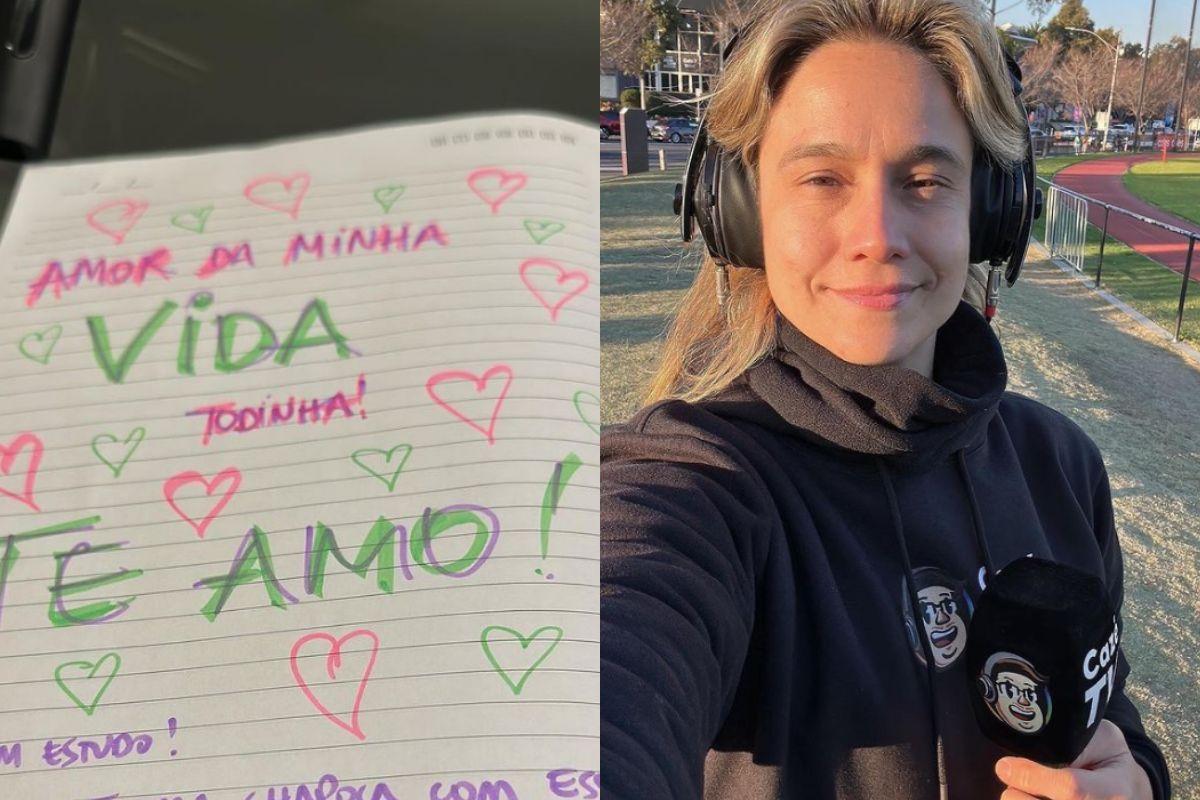 AMOR DA MINHA
VIDA
TODINHA!
TE AMO!
M ESTUDO!
CHAPOCA COM ESS
Cazé
TV